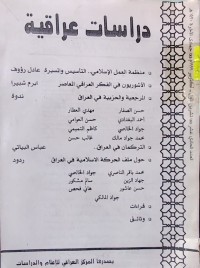 دراسات عراقية
منظمة العمل الإسلامي.. التأسيس والمسيرة عادل رؤوف
الآشوريون في الفكر العراقي المعاصر ابرم شبيرا
المرجعية والحزبية في العراق ندوة
حسن الصفار مهدي العطار
أحمد البغدادي حسن العوامي
جواد الخالصي كاظم التميمي
محمد جواد مالك غالب حسن
التركمان في العراق عباس البياتي
حول ملف الحركة الاسلامية في العراق ردود
محمد باقر الناصري جواد الخالصي
جهاد الزين سالم مشكور
حسن عاشور هاني فحص
جواد المالكي
قراءات
وثائق
يصدرها المركز العراقي للإعلام والدراسات